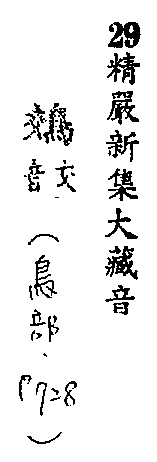 29精嚴新集大藏音
音交
（鳥部、P728）